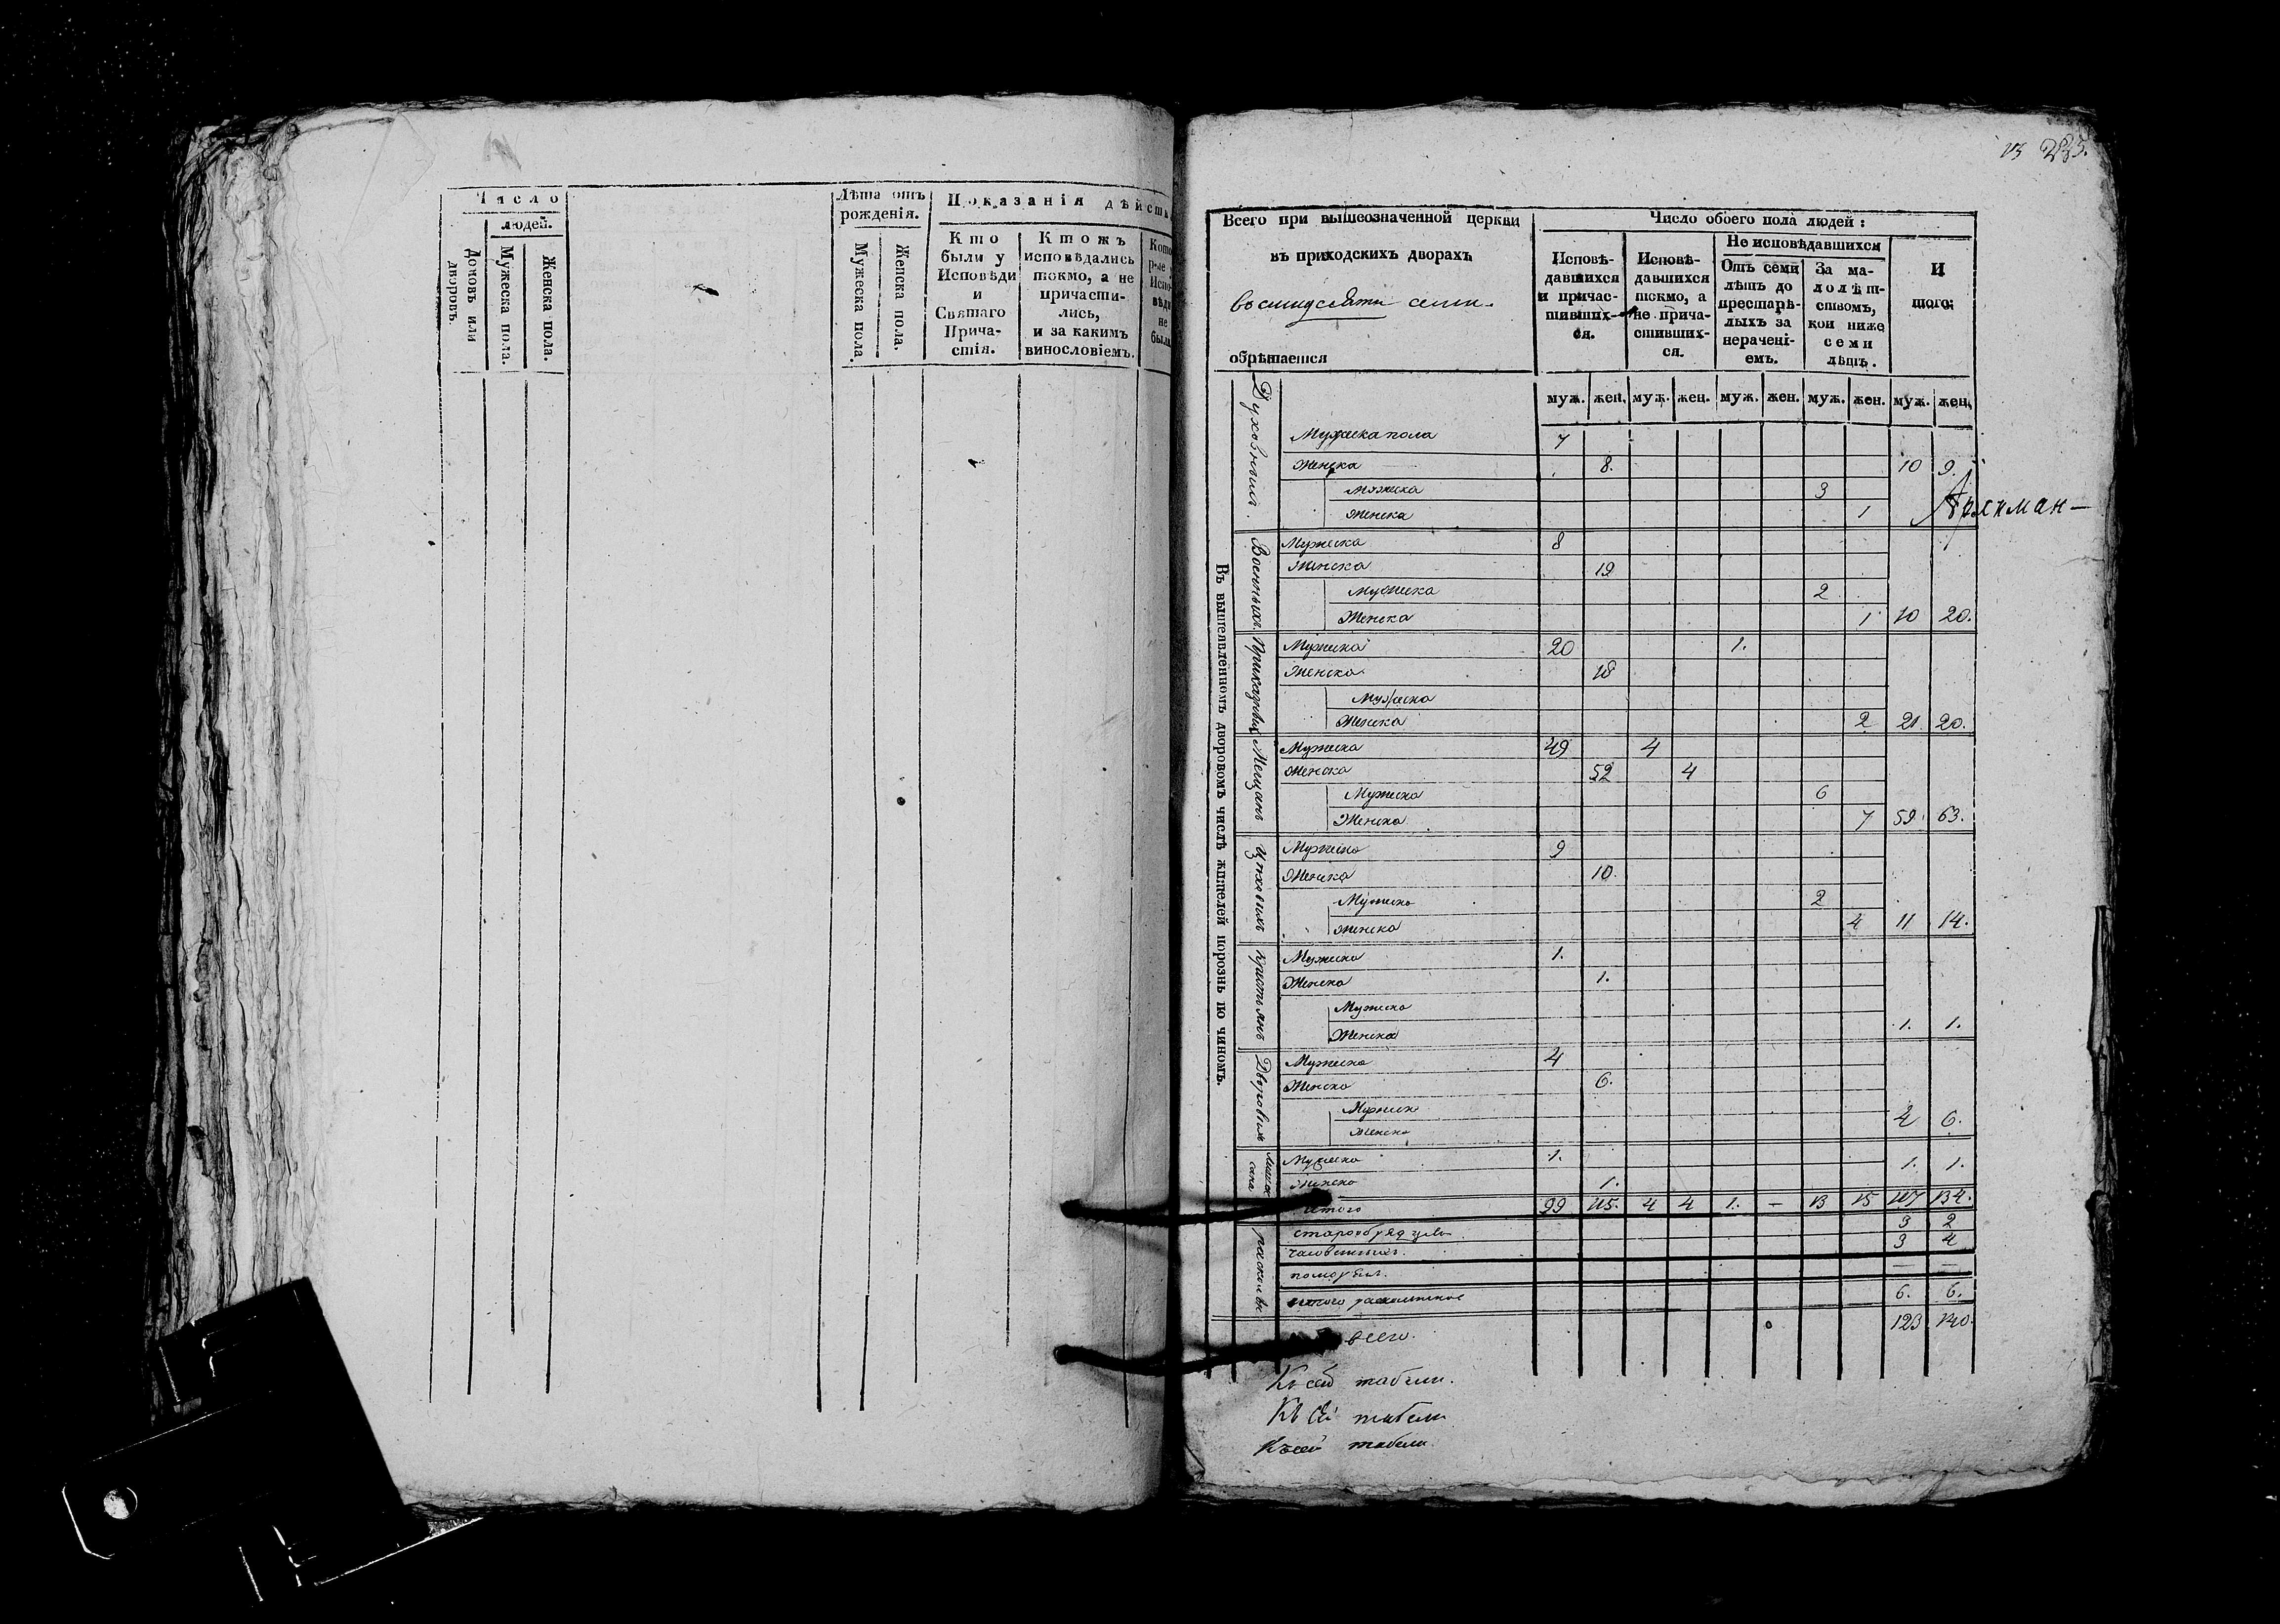 Число
людей.
Домовъ или дворовъ.
Мужеска пола.
Женска пола.
Лѣта отъ рожденія.
Мужеска пола.
Женска пола.
Показанія дѣйств
Кто
были у
Исповѣди
и
Святаго
Прича-
стія.
Ктожъ
исповѣдались
токмо, а не
причасти-
лись,
и за какимъ
винословіемъ.
Кото
рые
Испо-
вѣди
не
были
235.
Всего при вышеозначенной церкви
въ приходскихъ дворахъ
восмидесяти семи.
обрѣтается
Число обоего пола людей:
Исповѣ-
давшихся
и причас-
тивших-
ся.
Исповѣ-
давшихся
токмо, а
не прича-
стивших-
ся.
Не исповѣдавшихся
Отъ семи
лѣтъ до
престарѣ-
лыхъ за
нерачені-
емъ.
За ма-
лолѣт-
ствомъ,
кои ниже
семи
лѣтъ.
И
того:
муж. жен. муж. жен. муж. жен. муж. жен. муж. жен.
Въ вышеявленномъ дворовомъ числѣ жителей порознь по чиномъ.
Духовныхъ.
Мужеска пола 7
Женска 8. 10 9.
Мужеска 3
Женска 1
Архиман-
Военныхъ.
Мужеска 8
Женска 19
Мужеска 2
Женска 1 10 20.
Приказныхъ
Мужеска 20 1.
Женска 18
Мужеска
Женска 2 21. 20.
Мещанъ
Мужеска 49 4
Женска 52 4
Мужеска 6
Женска 7 59 63.
Цеховыхъ
Мужеска 9
Женска 10.
Мужеска 2
Женска 4 11 14.
Крестьянъ
Мужеска 1.
Женска 1.
Мужеска
Женска 1. 1.
Дворовых
Мужеска 4
Женска 6.
Мужеска
Женска 4 6.
Мужеска 1. 1. 1.
Женска 1.
Итого 99 115. 4 4 1. — 13 15 117 134.
раскольн
старообрядцовъ 3 2
часовенныхъ. 3 4
— —
итого раскольников 6. 6.
всего. 123 140.
Къ сей табели.
Къ сей табели
Къ сей табели.